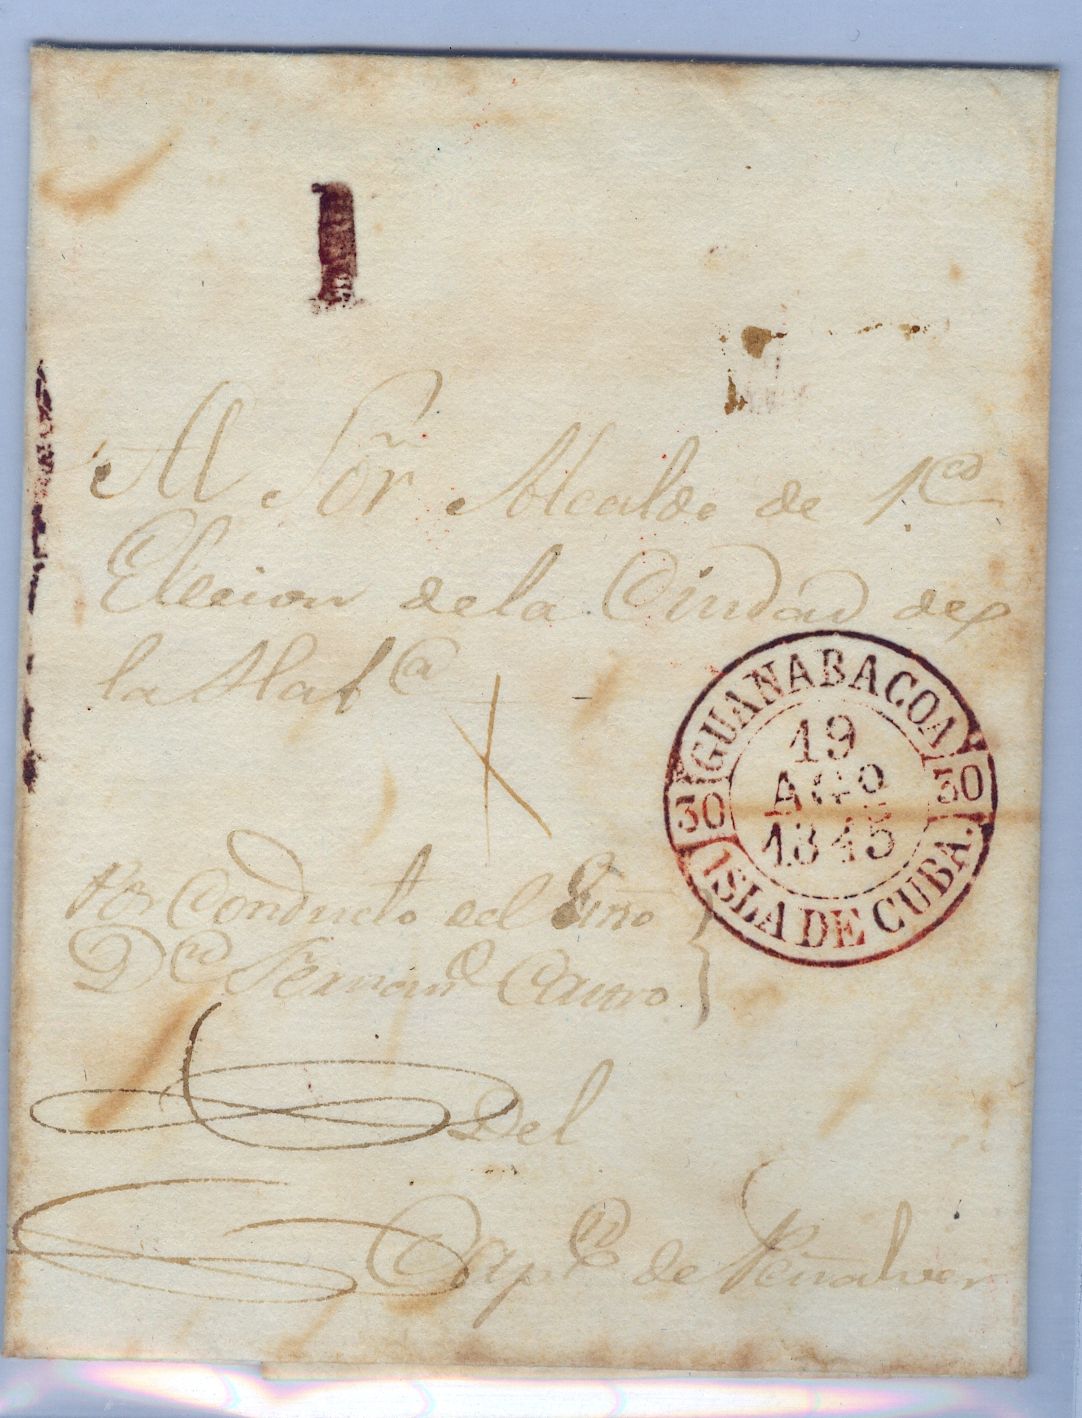 1
Al Sõr Alcalde de 1.ª
Elecion de la Ciudad de
la Habª
GUANABACOA
30 19 30
AGO
1845
ISLA DE CUBA.
Por Conducto del
Dⁿ Fernanᵈᵒ Castro
Del
Capⁿ de Peñalver